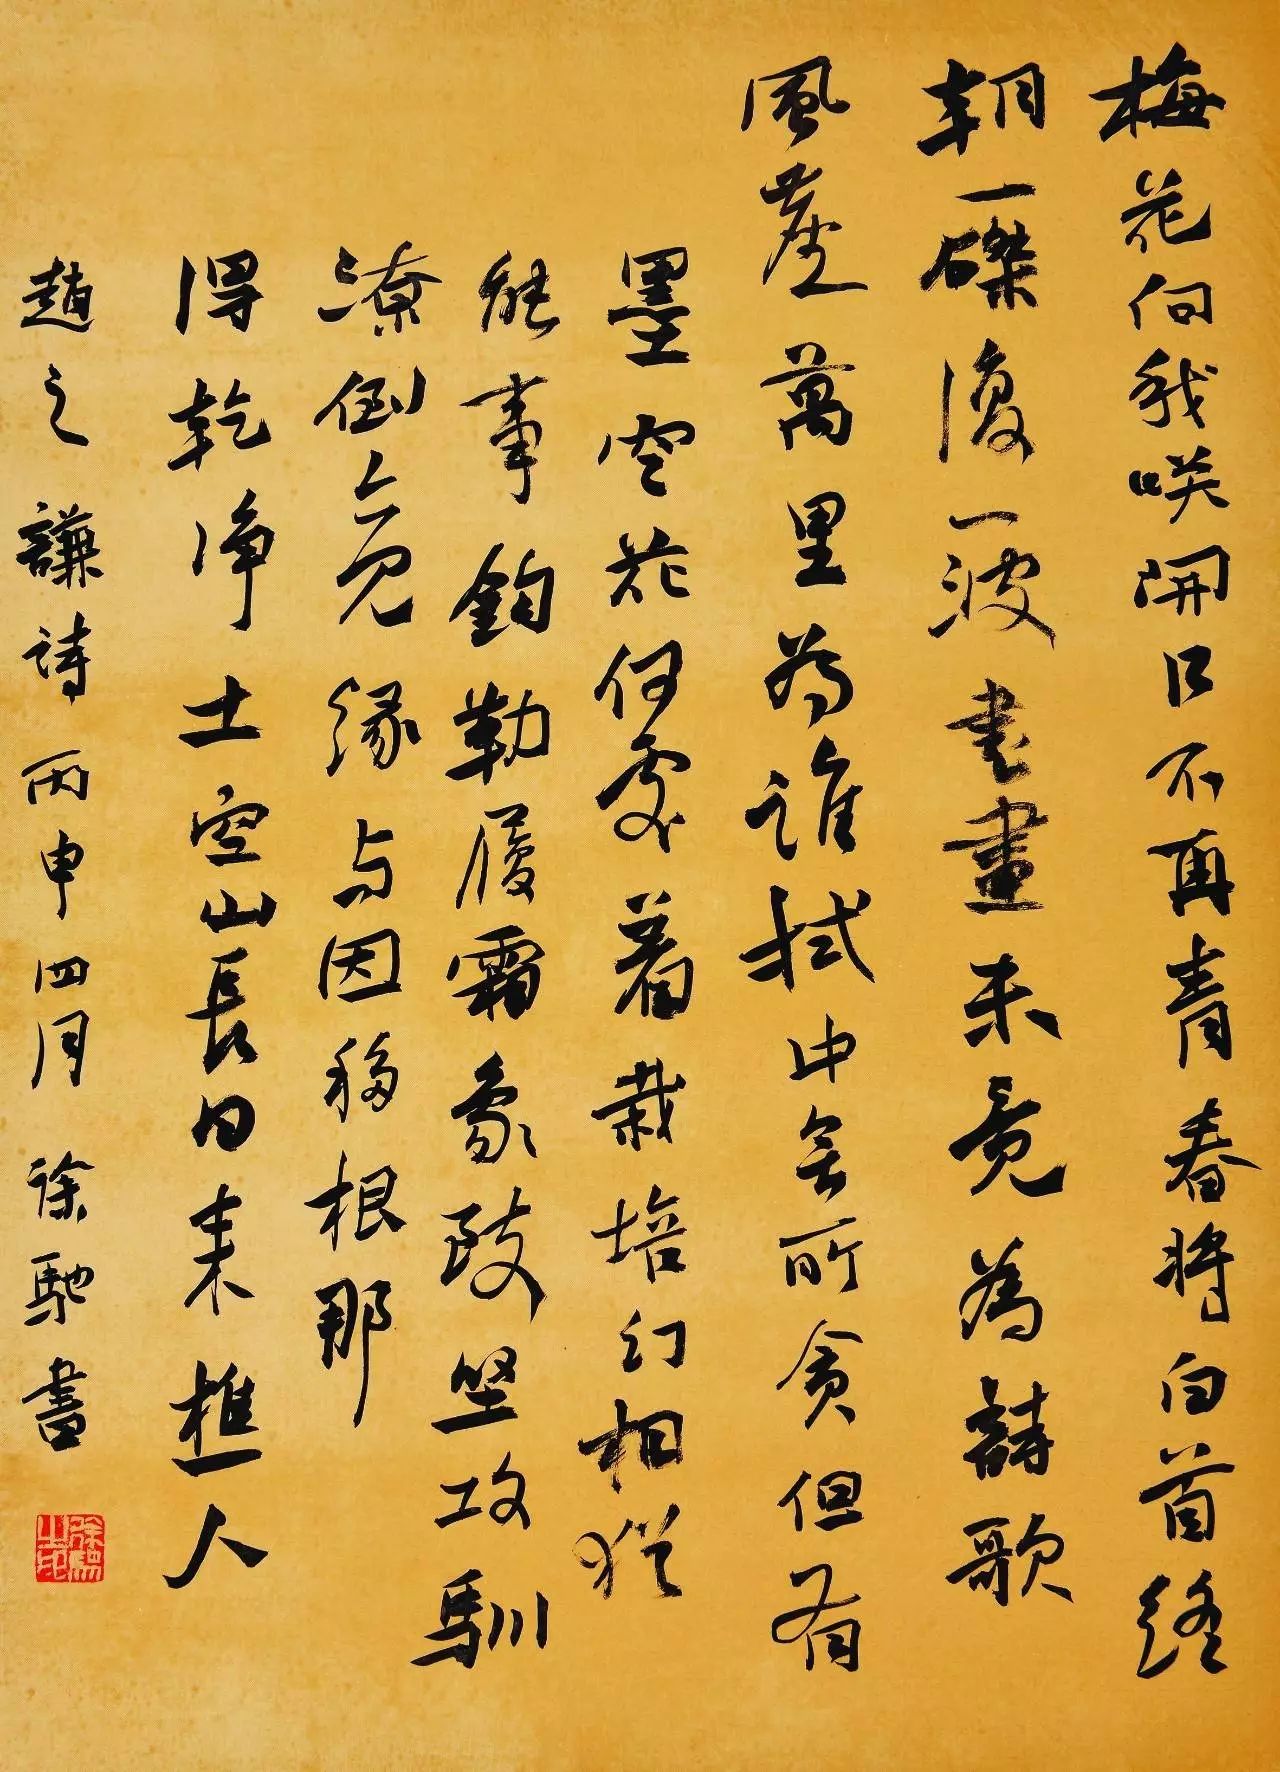 梅花向我咲開口不再青春將白首終
朝一磔復一波書畫未竟為詩歌
風塵萬里為誰拭中無所貪但有
墨空花何處著栽培幻相猶
能事鉤勒履霜象致堅攻馴
潦倒緣与因移根那
得乾淨土空山長日来樵人
趙之謙詩丙申四月徐馳書
徐馳之印